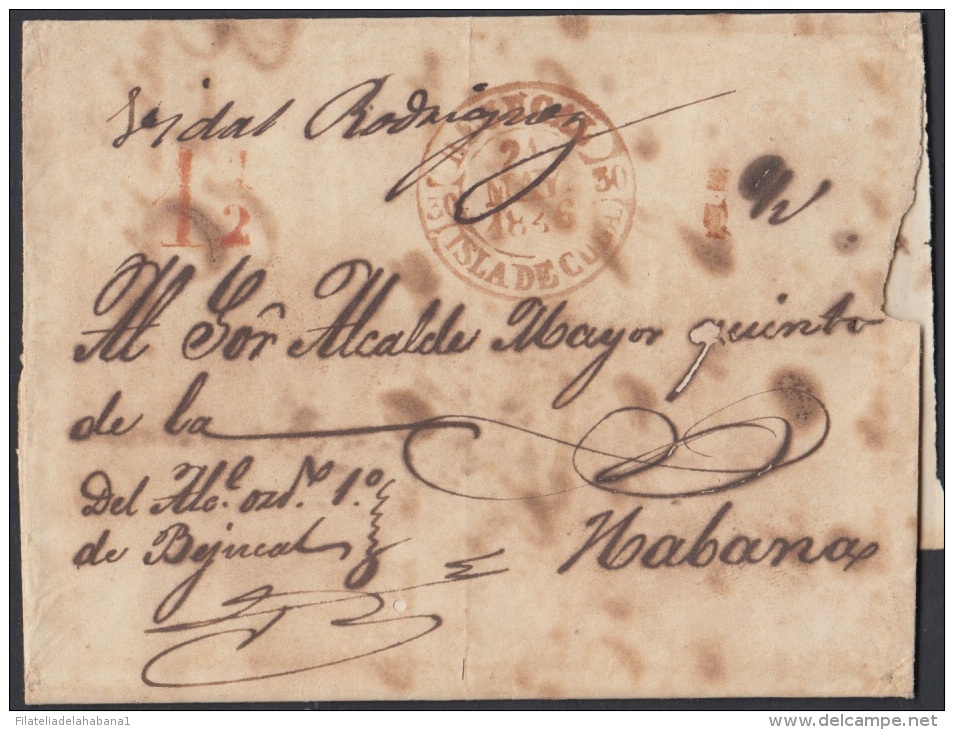 Vidal Rodriguez
1 1/2
24
MAY.
1846
30
ISLA DE CUBA
Al Sor̃ Alcalde Mayor quinto
de la
Del Alc.^l ord.º 1.º
de Bejucal
Habana
Filateliadelahabana1
www.delcampe.net